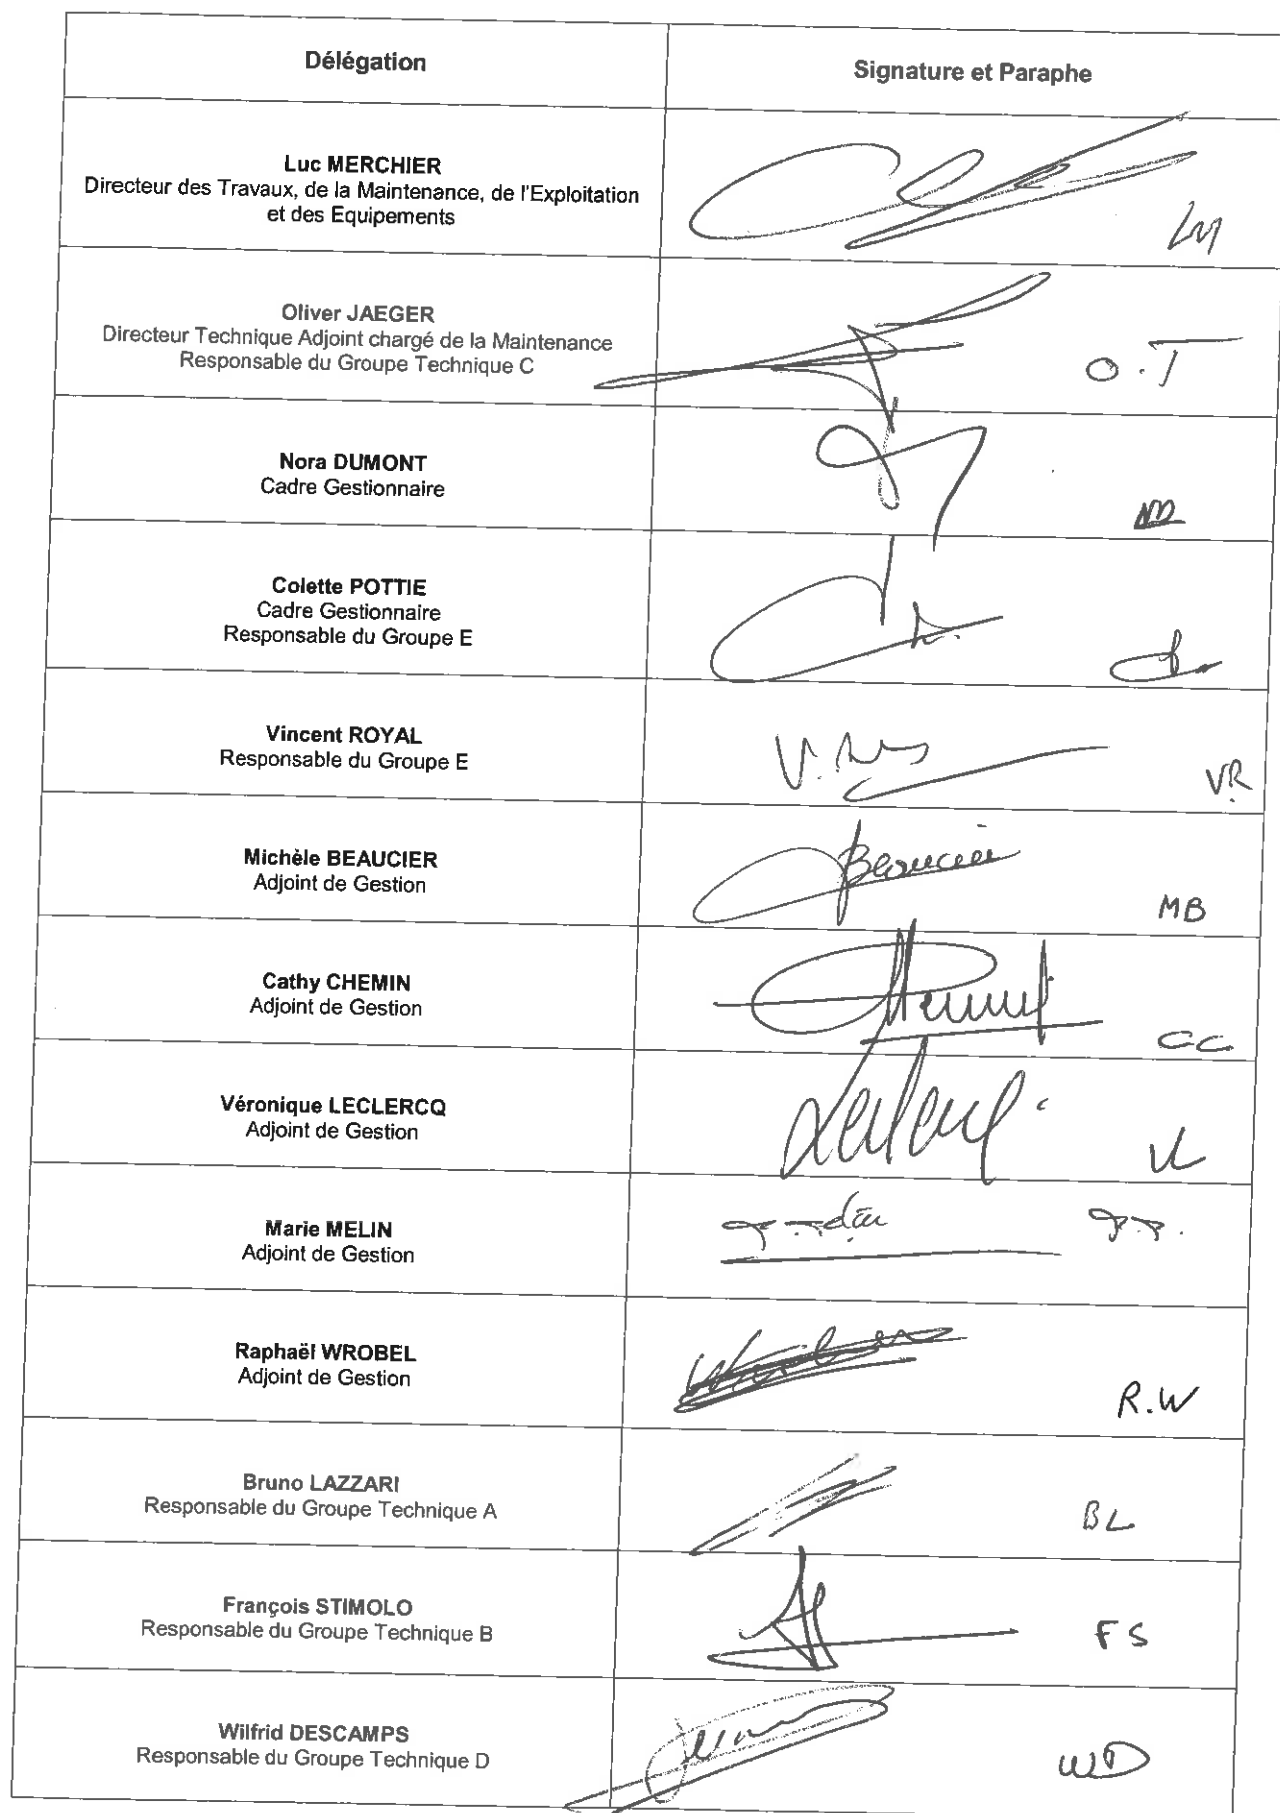 Délégation
Signature et Paraphe
Luc MERCHIER
Directeur des Travaux, de la Maintenance, de l'Exploitation
et des Equipements
LM
Oliver JAEGER
Directeur Technique Adjoint chargé de la Maintenance
Responsable du Groupe Technique C
O.J
Nora DUMONT
Cadre Gestionnaire
Colette POTTIE
Cadre Gestionnaire
Responsable du Groupe E
Vincent ROYAL
Responsable du Groupe E
VR
Michèle BEAUCIER
Adjoint de Gestion
Beaucier
MB
Cathy CHEMIN
Adjoint de Gestion
CC
Véronique LECLERCQ
Adjoint de Gestion
VL
Marie MELIN
Adjoint de Gestion
Raphaël WROBEL
Adjoint de Gestion
R.W
Bruno LAZZARI
Responsable du Groupe Technique A
BL
François STIMOLO
Responsable du Groupe Technique B
FS
Wilfrid DESCAMPS
Responsable du Groupe Technique D
WD